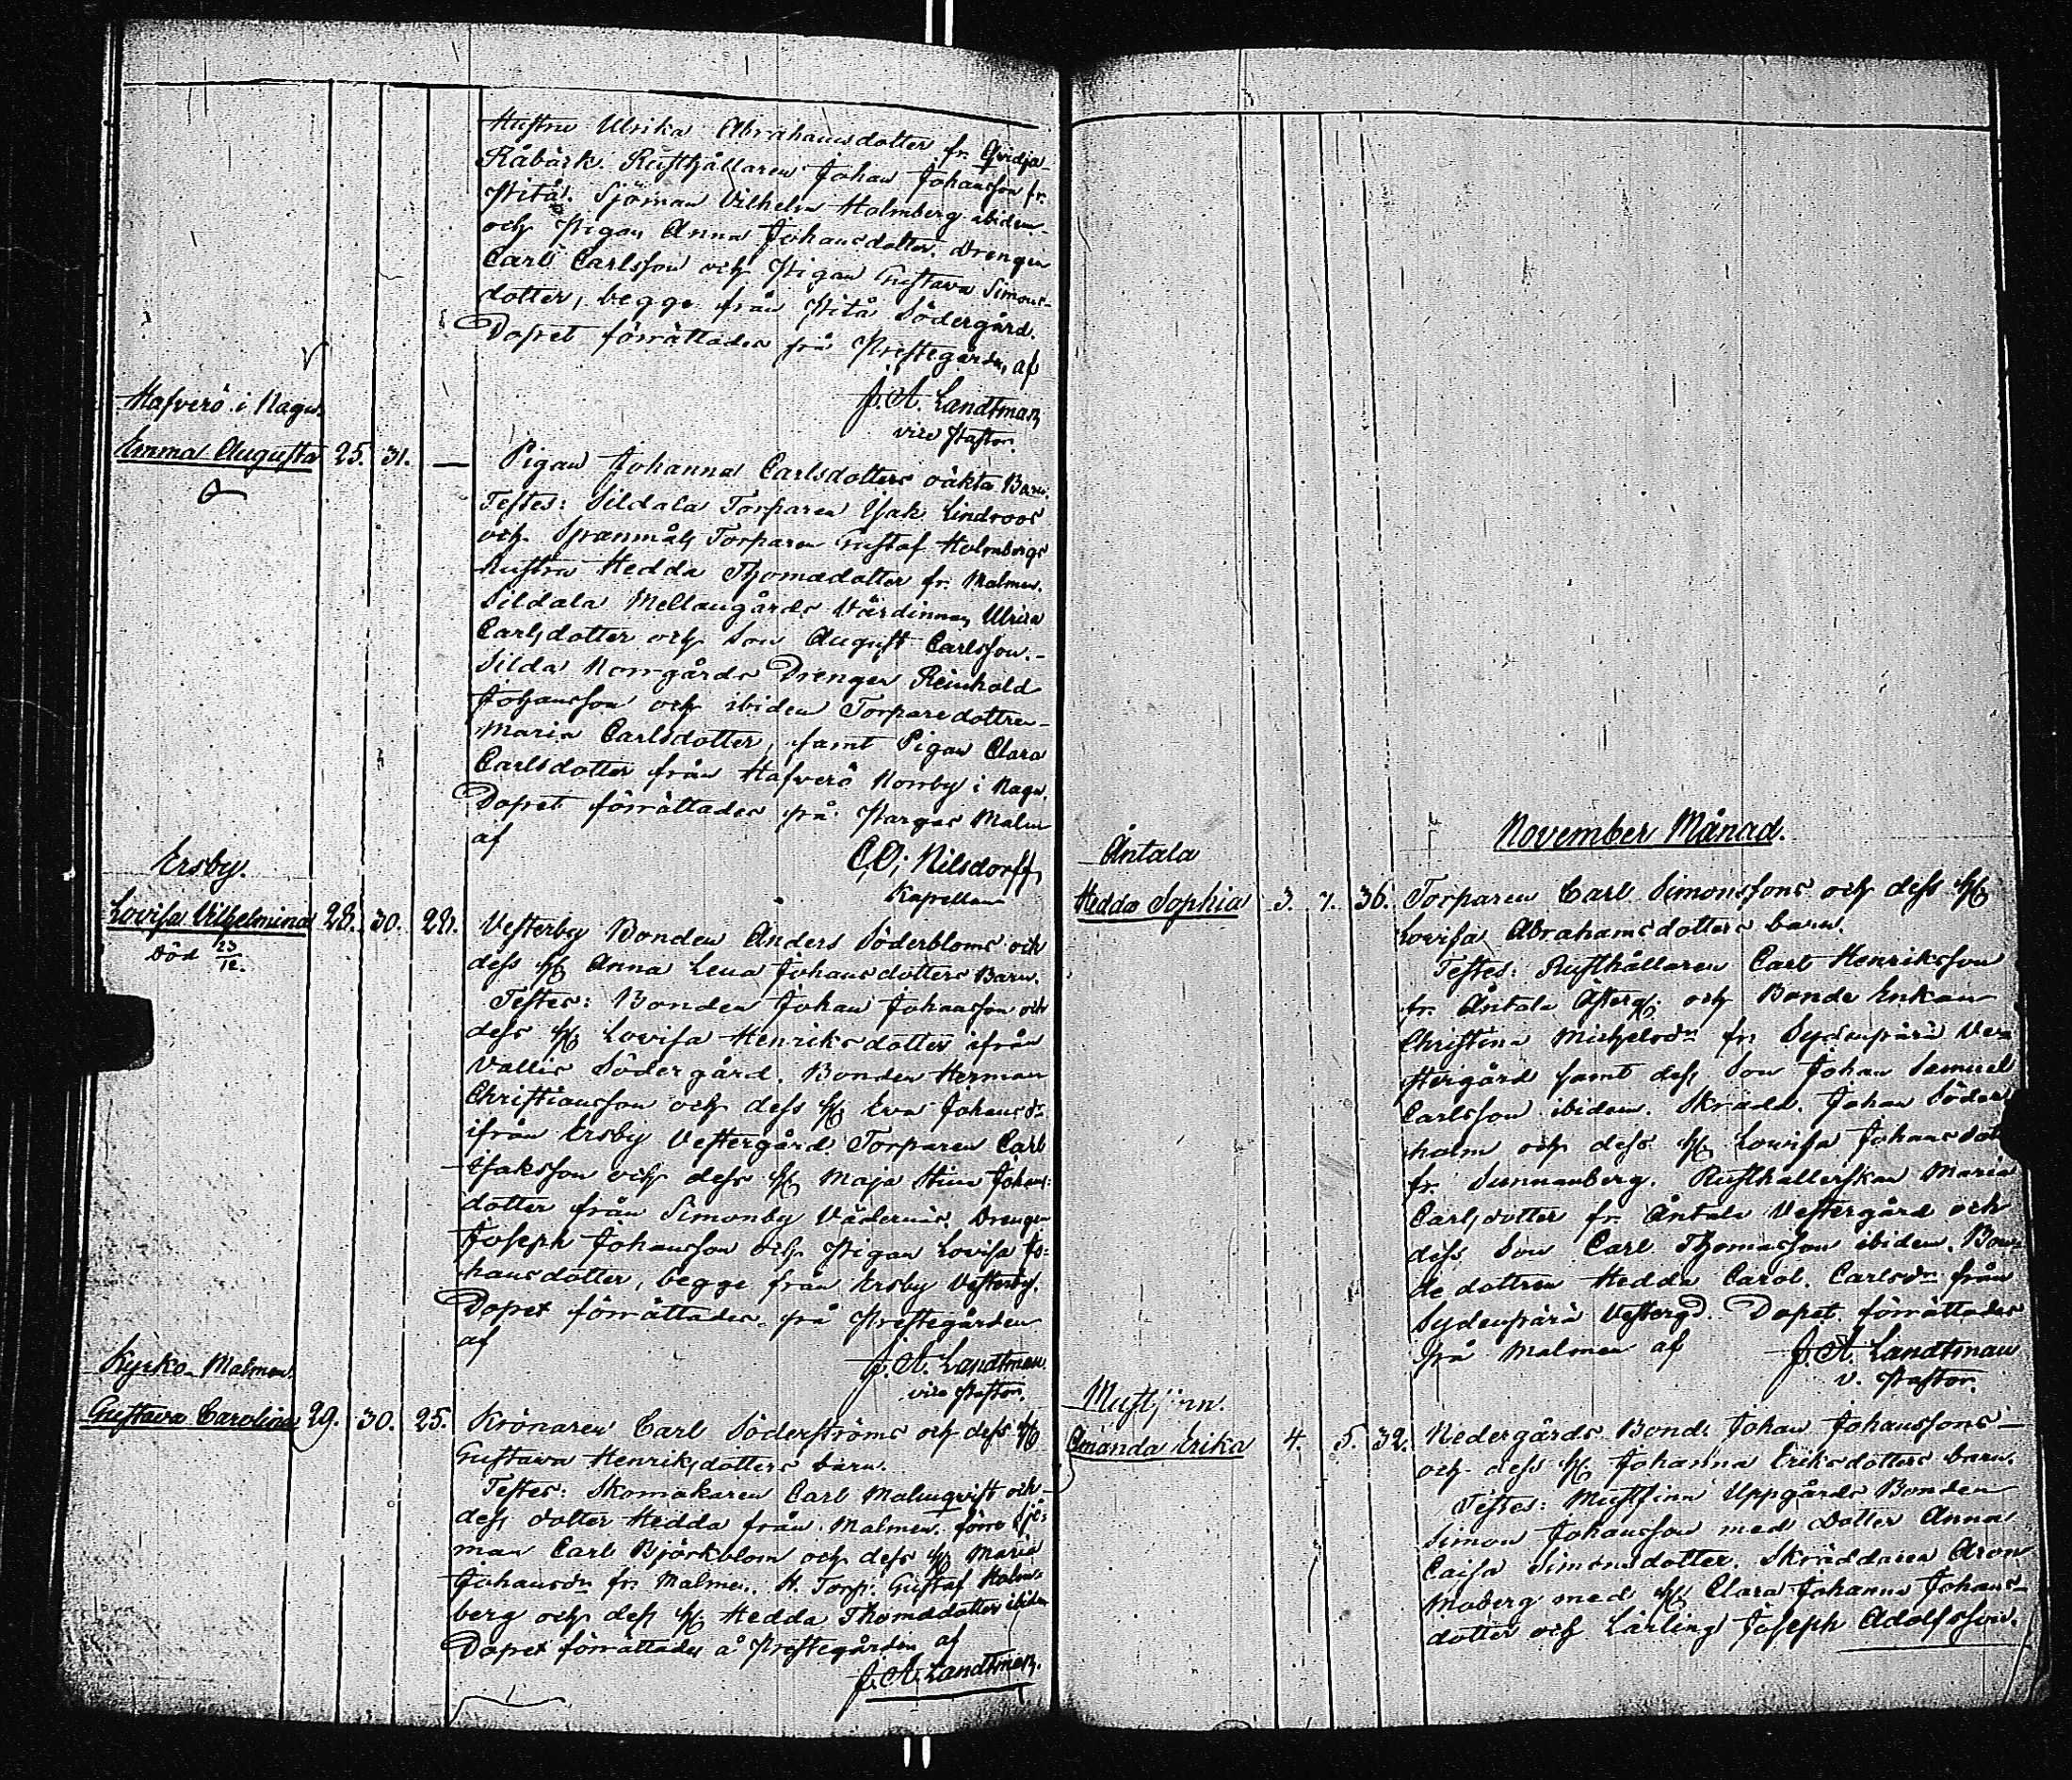 Hustru Ulrika Abrahamsdotter fr. Qvidja
Råbäck. Rusthållaren Johan Johansson fr.
Pitå. Sjöman Vilhelm Holmberg ibidem
och Pigan Anna Johansdotter. Drengen
Carl Carlsson och Pigan Gustava Simons-
dotter, begge från Pitå Södergård.
Dopet förrättades på Prestegården, af
J. A. Landtman,
vice Pastor.
Hafverö i Nagu.
Emma Augusta 25. 31. — Pigan Johanna Carlsdotters oäkta Barn.
Testes: Sildala Torparen Isak Lindroos
och Torparen Gustaf Holmbergs
hustru Hedda Thomædotter fr. Malmen.
Sildala Mellangårds Värdinnan Ulrica
Carlsdotter och Son August Carlsson.-
Silda Norrgårds Drengen Reinhold
Johansson och ibidem Torparedottren
Maria Carlsdotter, samt Pigan Clara
Carlsdotter från Hafverö Norrby i Nagu.
Dopet förrättades på Pargas Malm
af
C. O. Nilsdorff,
Kapellan
Ersby.
Lovisa Vilhelmina 28. 30. 28. Vesterby Bonden Anders Söderbloms och
Död 23/12.
dess H. Anna Lena Johansdotters Barn.
Testes: Bonden Johan Johansson och
dess H. Lovisa Henriksdotter ifrån
Vallis Södergård. Bonden Herman
Christiansson och dess H. Eva Johansdr
ifrån Ersby Vestergård. Torparen Carl
Isaksson och dess H. Maja Stina Johans:
dotter från Simonby Drengen
Joseph Johansson och Pigan Lovisa Jo:
hansdotter, begge från Ersby Vesterby.
Dopet förrättades på Prestegården
af
J. A. Landtman.
vice Pastor.
Kyrko-Malmen.
Gustava Carolina 29. 30. 25. Krönaren Carl Söderströms och dess H.
Gustava Henriksdotters barn.
Testes: Skomakaren Carl Malmqvist och
dess dotter Hedda från Malmen. förre Sjö:
man Carl Björkblom och dess H. Maria
Johansdr fr. Malmen. Torp. Gustaf Holm-
berg och dess H. Hedda Thomædotter ibidem
Dopet förrättades å Prestegården af
J. A. Landtman.
November Månad.
Åntala
Hedda Sophia 3. 7. 36. Torparen Carl Simonssons och dess H.
Lovisa Abrahamsdotters barn.
Testes: Rusthållaren Carl Henriksson
fr. Åntala Österg. och Bonde Enkan
Christina Michelsdr fr. Sydenpärä Ve-
stergård samt dess Son Johan Samuel
Carlsson ibidem. Skrädd. Johan Söder
holm och dess H. Lovisa Johansdott
fr. Sunnanberg. Rusthållerskan Maria
Carlsdotter fr. Åntala Vestergård och
dess Son Carl Thomasson ibidem. Bon-
de dottren Hedda Carol. Carlsdr från
Sydenpärä Vestergd. Dopet förrättades
på Malmen af J. A. Landtman
v. Pastor.
Mustfinn.
Amanda Erika 4. 5. 32. Nedergårds Bond. Johan Johanssons
och dess H. Johanna Eriksdotters barn.
Testes: Mustfinn Uppgårds Bonden
Simon Johansson med Dotter Anna
Caisa Simonsdotter. Skräddaren Aron
Moberg med H. Clara Johanna Johans-
dotter och Lärling Joseph Adolfsson.